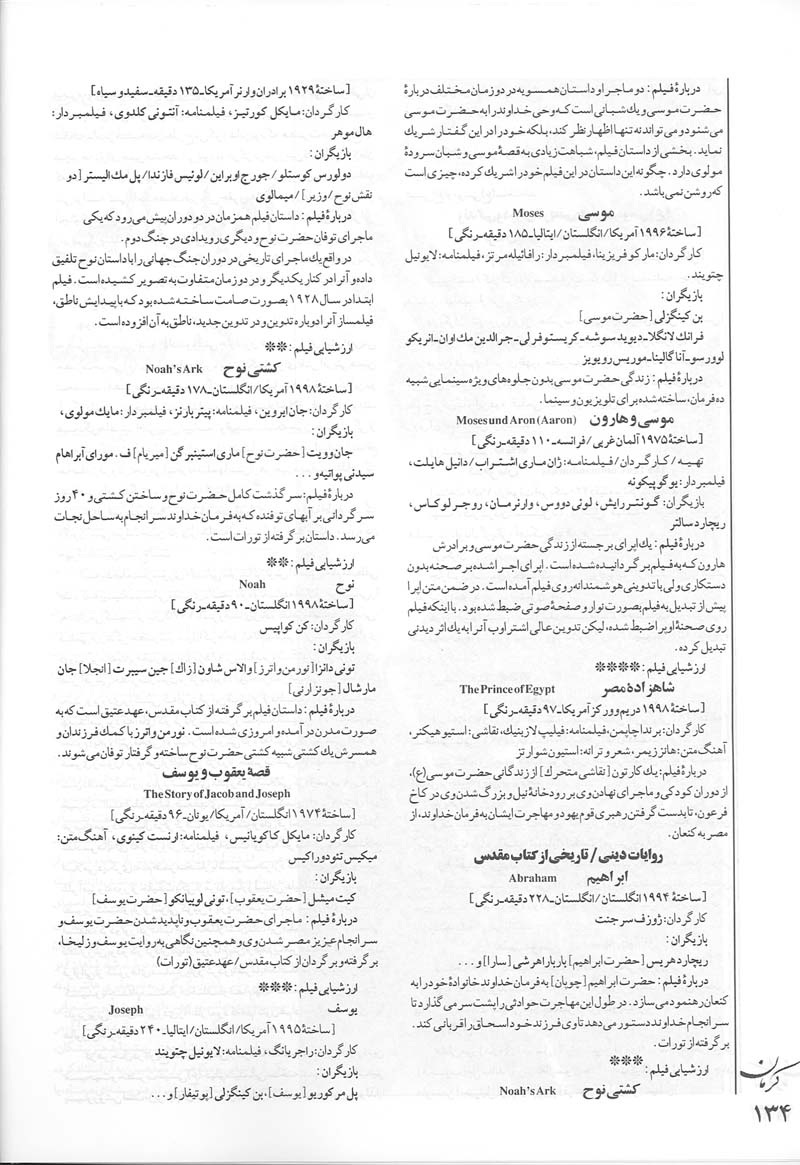 دربارهٔ فیلم: دو ماجرا و داستان همسو به در دو زمان مختلف دربارهٔ
حضرت موسی و یك شبانی است که وحی خداوند را به حضرت موسی
می‌شنود و می‌تواند نه تنها اظهار نظر کند، بلکه خود را در این گفتار شریك
نماید. بخشی از داستان فیلم، شباهت زیادی به قصهٔ موسی و شبان سرودهٔ
مولوی دارد. چگونه این داستان در این فیلم خود را شریك کرده، چیزی است
که روشن نمی‌باشد.
موسی Moses
[ساختهٔ ۱۹۹۶ آمریکا/انگلستان/ایتالیا-۱۸۵ دقیقه-رنگی]
کارگردان: مارکو فریزینا، فیلمبردار: رافائیله مرتز، فیلمنامه: لایونیل
چتویند.
بازیگران:
بن کینگزلی [حضرت موسی]
فرانك لانگلا-دیوید سوشه-کریستوفر لی-جرالدین مك اوان-انریکو
لوورسو-آنا گالینا-موریس رویویز
دربارهٔ فیلم: زندگی حضرت موسی بدون جلوه‌های ویژه سینمایی شبیه
ده فرمان، ساخته شده برای تلویزیون و سینما.
موسی و هارون Moses und Aron (Aaron)
[ساختهٔ ۱۹۷۵ آلمان غربی/فرانسه-۱۱۰ دقیقه-رنگی]
تهیه/کارگردان/فیلمنامه: ژان ماری اشتراب/دانیل هایلت،
فیلمبردار: یوگو پیکونه
بازیگران: گونتر رایش، لونی دووس، وارنر مان، روجر لوکاس،
ریچارد سالتر
دربارهٔ فیلم: یك اپرای برجسته از زندگی حضرت موسی و برادرش
هارون که به فیلم برگردانیده شده است. اپرای اجرا شده بر صحنه بدون
دستکاری ولی با تدوینی هوشمندانه روی فیلم آمده است. در ضمن متن اپرا
پیش از تبدیل به فیلم بصورت نوار و صفحهٔ صوتی ضبط شده بود. با اینکه فیلم
روی صحنهٔ اوبرا ضبط شده، لیکن تدوین عالی اشتراوب آنرا به یك اثر دیدنی
تبدیل کرده.
ارزشیابی فیلم: ****
شاهزادهٔ مصر The Prince of Egypt
[ساختهٔ ۱۹۹۸ دریم وورکز آمریکا-۹۷ دقیقه-رنگی]
کارگردان: برندا چاپمن، فیلمنامه: فیلیپ لازبنیك، نقاشی: استیو هیکنر،
آهنگ متن: هانز زیمر، شعر و ترانه: استیون شوارتز
دربارهٔ فیلم: یك کارتون [نقاشی متحرك] از زندگانی حضرت موسی(ع)،
از دوران کودکی و ماجرای نهادن وی بر رودخانهٔ نیل و بزرگ شدن وی در کاخ
فرعون، تا بدست گرفتن رهبری قوم یهود و مهاجرت ایشان به فرمان خداوند، از
مصر به کنعان.
روایات دینی/تاریخی از کتاب مقدس
ابراهیم Abraham
[ساختهٔ ۱۹۹۴ انگلستان/انگلستان-۲۲۸ دقیقه-رنگی]
کارگردان: ژوزف سرجنت
بازیگران:
ریچارد هریس [حضرت ابراهیم] باربارا هرشی [سارا] و...
دربارهٔ فیلم: حضرت ابراهیم [چوپان] به فرمان خداوند خانوادهٔ خود را به
کنعان رهنمود می‌سازد. در طول این مهاجرت حوادثی را پشت سر می‌گذارد تا
سرانجام خداوند دستور می‌دهد تا وی فرزند خود اسحاق را قربانی کند.
برگرفته از تورات.
ارزشیابی فیلم: ***
کشتی نوح Noah's Ark
[ساختهٔ ۱۹۲۹ برادران وارنر آمریکا-۱۳۵ دقیقه-سفید و سیاه]
کارگردان: مایکل کورتیز، فیلمنامه: آنتونی کلدوی، فیلمبردار:
هال موهر
بازیگران:
دولورس کوستلو/جورج اوبراین/لوئیس فازندا/پل مك الیستر [دو
نقش نوح/وزیر]/میمالوی
دربارهٔ فیلم: داستان فیلم همزمان در دو دوران پیش می‌رود که یکی
ماجرای توفان حضرت نوح و دیگری رویدادی در جنگ دوم.
در واقع یك ماجرای تاریخی در دوران جنگ جهانی را با داستان نوح تلفیق
داده و آنرا در کنار یکدیگر و در دو زمان متفاوت به تصویر کشیده است. فیلم
ابتدا در سال ۱۹۲۸ بصورت صامت ساخته شده بود که با پیدایش ناطق،
فیلمساز آنرا دوباره تدوین و در تدوین جدید، ناطق به آن افزوده است.
ارزشیابی فیلم: **
کشتی نوح Noah's Ark
[ساختهٔ ۱۹۹۸ آمریکا/انگلستان-۱۷۸ دقیقه-رنگی]
کارگردان: جان ایروین، فیلمنامه: پیتر بارنز، فیلمبردار: مایك مولوی،
بازیگران:
جان وویت [حضرت نوح] ماری استینبرگن [میریام] ف. مورای آبراهام
سیدنی پواتیه و...
دربارهٔ فیلم: سرگذشت کامل حضرت نوح و ساختن کشتی و ۴۰ روز
سرگردانی بر آبهای توفنده که به فرمان خداوند سرانجام به ساحل نجات
می‌رسد. داستان برگرفته از تورات است.
ارزشیابی فیلم: **
نوح Noah
[ساختهٔ ۱۹۹۸ انگلستان-۹۰ دقیقه-رنگی]
کارگردان: کن کواپیس
بازیگران:
تونی دانزا [نورمن واترز] والاس شاون [زاك] جین سیبرت [انجلا] جان
مارشال [جونز ارنی]
دربارهٔ فیلم: داستان فیلم برگرفته از کتاب مقدس، عهد عتیق است که به
صورت مدرن در آمده و امروزی شده است. نورمن واترز با کمك فرزندان و
همسرش یك کشتی شبیه کشتی حضرت نوح ساخته و گرفتار توفان می‌شوند.
قصهٔ یعقوب و یوسف
The Story of Jacob and Joseph
[ساختهٔ ۱۹۷۴ انگلستان/آمریکا/یونان-۹۶ دقیقه-رنگی]
کارگردان: مایکل کاکویانیس، فیلمنامه: ارنست کینوی، آهنگ متن:
میکیس تئودوراکیس
بازیگران:
کیت میشل [حضرت یعقوب]، تونی لوبیانکو [حضرت یوسف]
دربارهٔ فیلم: ماجرای حضرت یعقوب و ناپدید شدن حضرت یوسف و
سرانجام عزیز مصر شدن وی و همچنین نگاهی به روایت یوسف و زلیخا،
برگرفته و برگردان از کتاب مقدس/عهد عتیق (تورات)
ارزشیابی فیلم: ***
یوسف Joseph
[ساختهٔ ۱۹۹۵ آمریکا/انگلستان/ایتالیا-۲۴۰ دقیقه-رنگی]
کارگردان: راجر یانگ، فیلمنامه: لایونیل چتویند
بازیگران:
پل مرکوریو [یوسف]، بن کینگزلی [پوتیفار] و...
کرمان
۱۳۴